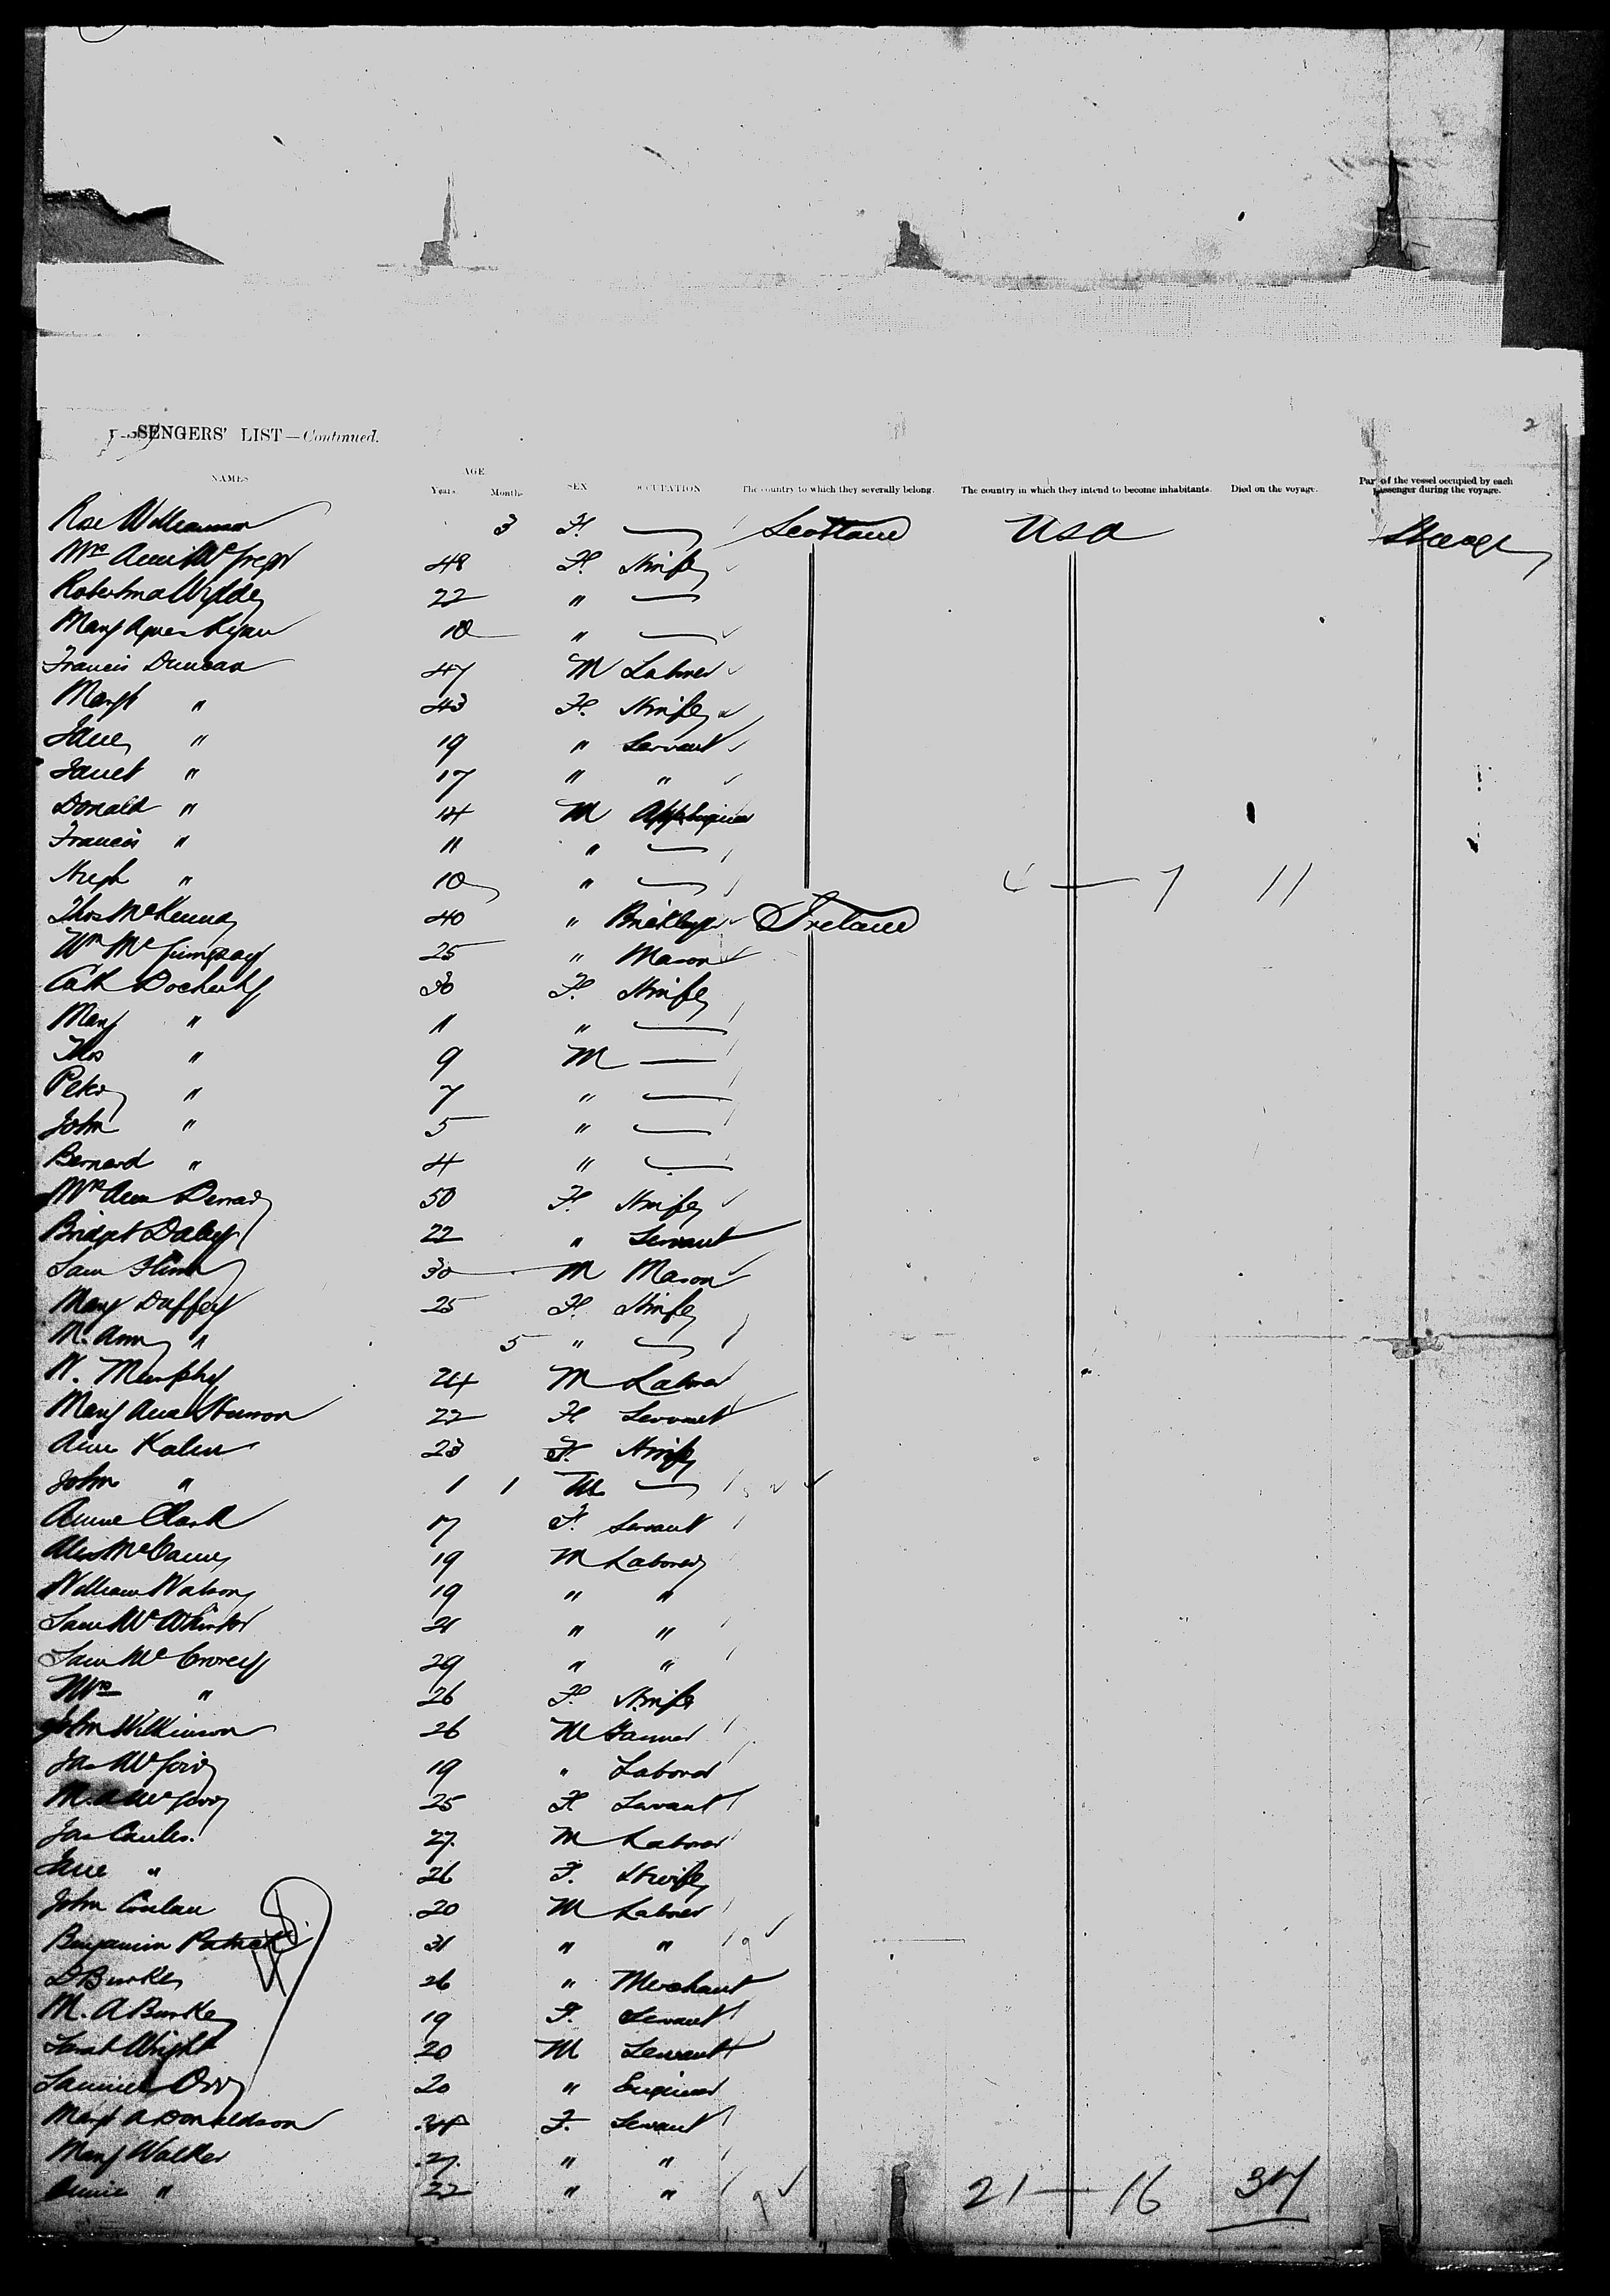 2
PASSENGERS' LIST—Continued.
NAMES AGE Years. Months SEX OCCUPATION The country to which they severally belong. The country in which they intend to become inhabitants. Died on the voyage. Part of the vessel occupied by each passenger during the voyage.
Rose Williamson 3 F. — Scotland USA Steerage
Mrs Annie McGregor 48 F. H wife
Robertina 22 " —
Mary Agnes Ryan 10 " —
Francis Duncan 47 M Laborer
Margt " 43 F. H wife
Jane " 19 " Servant
Janet " 17 " "
Donald " 14 M
Francis " 11 " —
Hugh " 10 " — 4 — 7 11
Thos McKenna 40 " Bricklayer Ireland
Wm McGimpsey 25 " Mason
Cath Docherty 30 F. H wife
Mary " 11 " —
Thos " 9 M —
Peter " 7 " —
John " 5 " —
Bernard " 4 " —
Mrs Ann 50 F. H wife
Bridget Daley 22 " Servant
Sam Flinn 30 M Mason
Mary Duffey 25 F. H wife
M. Ann " 5 " —
N. Murphy 24 M Laborer
Mary Ann 22 F. Servant
Ann 23 F. H wife
John " 1 1 M —
Annie Clark 17 F. Servant
Alex 19 M Laborer
William Watson 19 " "
Sam McWhirter 21 " "
Sam McCrorey 29 " "
Mrs " 26 F. H wife
John Wilkinson 26 M Farmer
Jas 19 " Laborer
M. A 25 F. Servant
Jas 27 M Laborer
Jane " 26 F. H wife
John Conlan 20 M Laborer
Benjamin Patrick 31 " "
D Burke 26 " Merchant
M. A Burke 19 F. Servant
Wright 20 M Servant
Samuel Orr 20 " Engineer
Mary A Donaldson 24 F. Servant
Mary Walker 27 " "
Annie " 22 " " 21 — 16 37